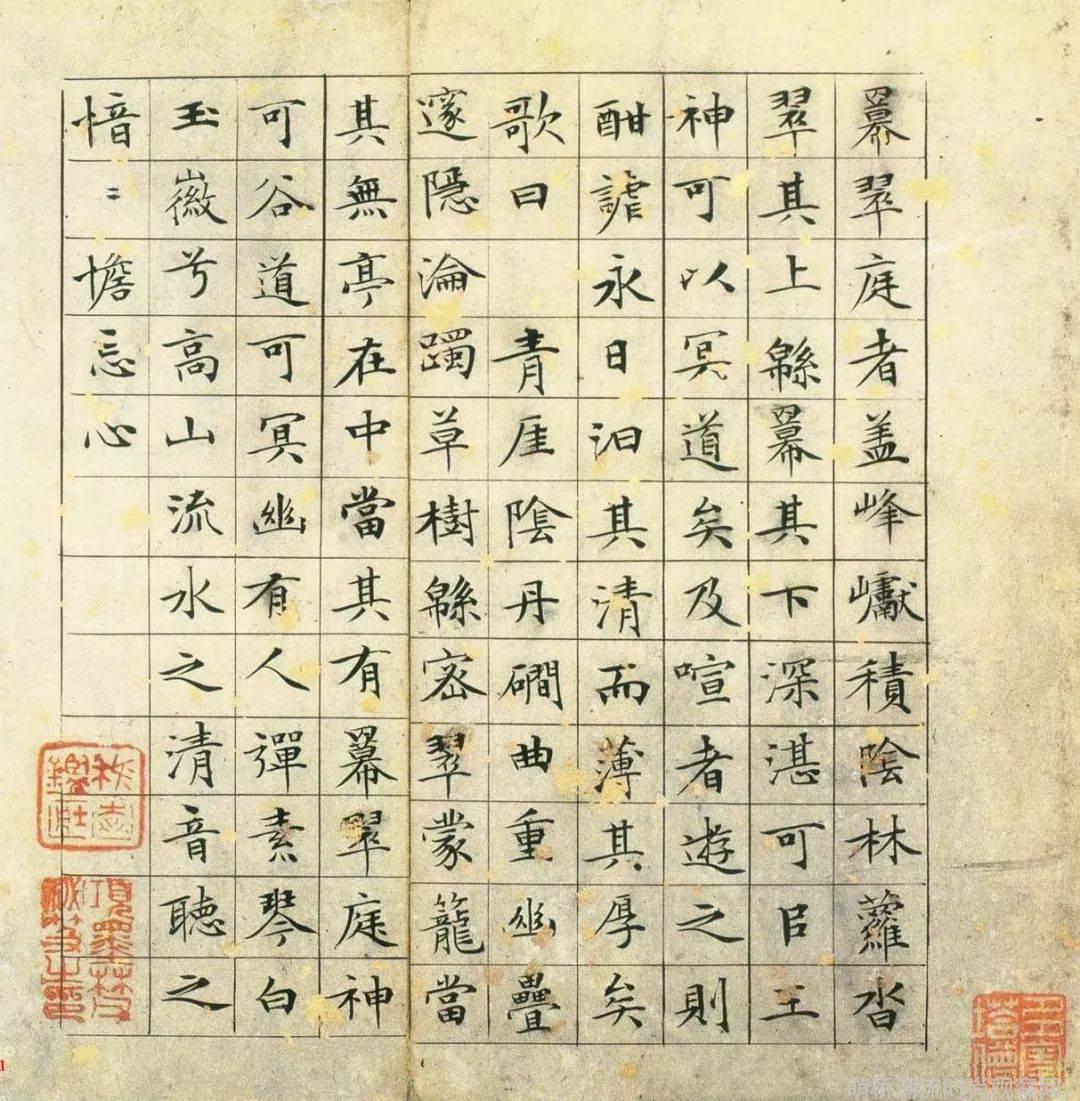 羃翠庭者盖峰巘積陰林蘿沓
翠其上緜羃其下深湛可㠯王
神可以冥道矣及喧者遊之則
酣謔永日汩其清而薄其厚矣
歌曰　青厓陰丹磵曲重幽疊
邃隱淪躅草樹緜密翠蒙籠當
其無亭在中當其有羃翠庭神
可谷道可冥幽有人彈素琴白
玉徽兮高山流水之清音聽之
愔〻憺忘心
項墨林父
秘笈之印